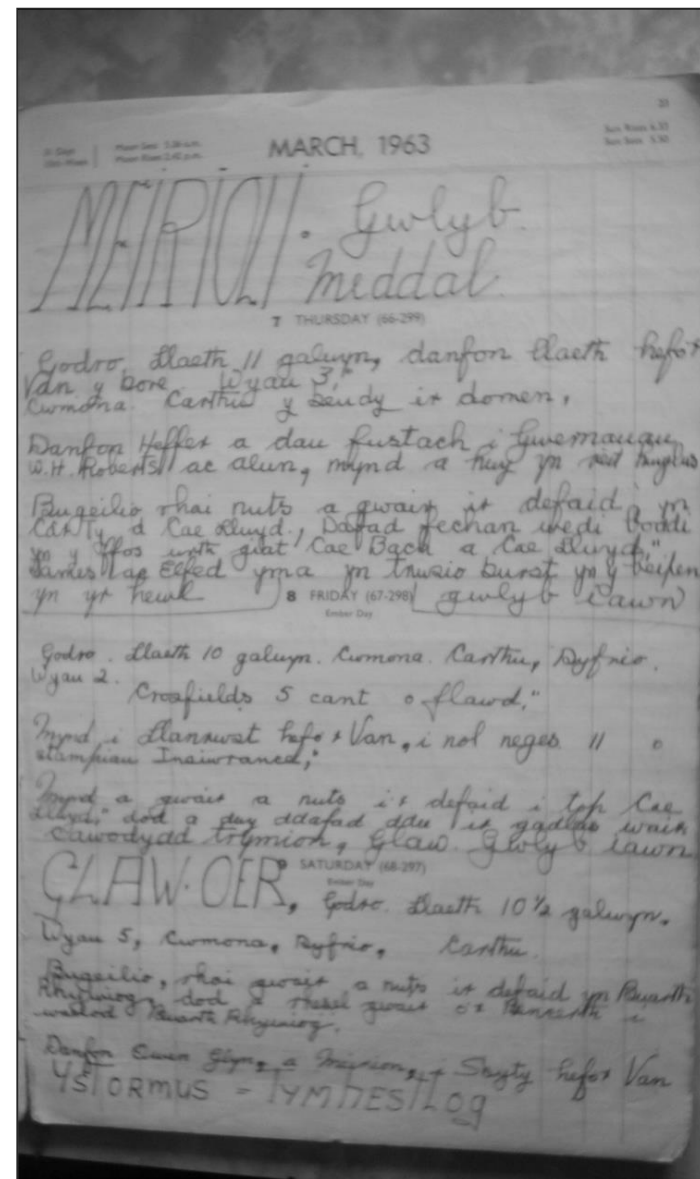 MARCH, 1963
MEIRIOLI. Gwlyb.
Meddal
7 THURSDAY (66-299)
Godro, Llaeth 11 galwyn, danfon llaeth hefo'r
Van y bore. Wyau 3,"
Cwmona. Carthu y beudy i'r domen,
Danfon Heffer a dau fustach i
W.H. Roberts ac Alun, mynd a
Bugeilio rhoi nuts a gwair i'r defaid, yn
Cae Llwyd., Dafad fechan wedi boddi
yn y ffos wrth giat Cae Bach a Cae Llwyd,"
James ac Elfed yma yn trwsio burst yn y beipen
yn yr hewl
8 FRIDAY (67-298)
gwlyb iawn
Ember Day
Godro. Llaeth 10 galwyn. Cwmona. Carthu, Dyfrio.
Wyau 2.
Crosfields 5 cant o flawd,"
Mynd i Llanrwst hefo'r Van, i nol neges // o
stampiau Insiwrance,"
Mynd a gwair a nuts i'r defaid i top Cae
Llwyd," dod a ddafad ddu i'r wair
cawodydd trymion, Glaw. Gwlyb iawn
9 SATURDAY (68-297)
Ember Day
GLAW. OER, Godro. Llaeth 10 1/2 galwyn.
Wyau 5, Cwmona, Dyfrio, Carthu.
Bugeilio, rhoi gwair a nuts i'r defaid yn Buarth
Rhyiniog, dod a gwair o'r i
waelod Buarth Rhyiniog.
Danfon Owen Glyn, a Meirion, i hefo'r Van
YSTORMUS - TYMHESTLOG